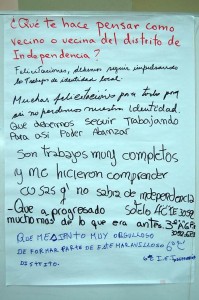 ¿Qué te hace pensar como
vecino o vecina del distrito de
Independencia?
Felicitaciones, debemos seguir impulsando
la Trabajo de identidad local.
Muchas felicitaciones para todos por
así no perdemos nuestra identidad.
Que debemos seguir Trabajando
Para así Poder Abanzar
Son trabajos muy completos
y me hicieron comprender
cosas q' no sabia de independencia
-Que a progresado sotelo
mucho mas de lo que era antes. 3º
QUE ME SIENTO MUY ORGULLOSO
DE FORMAR PARTE DE ESTE MARAVILLOSO 6º
DISTRITO.